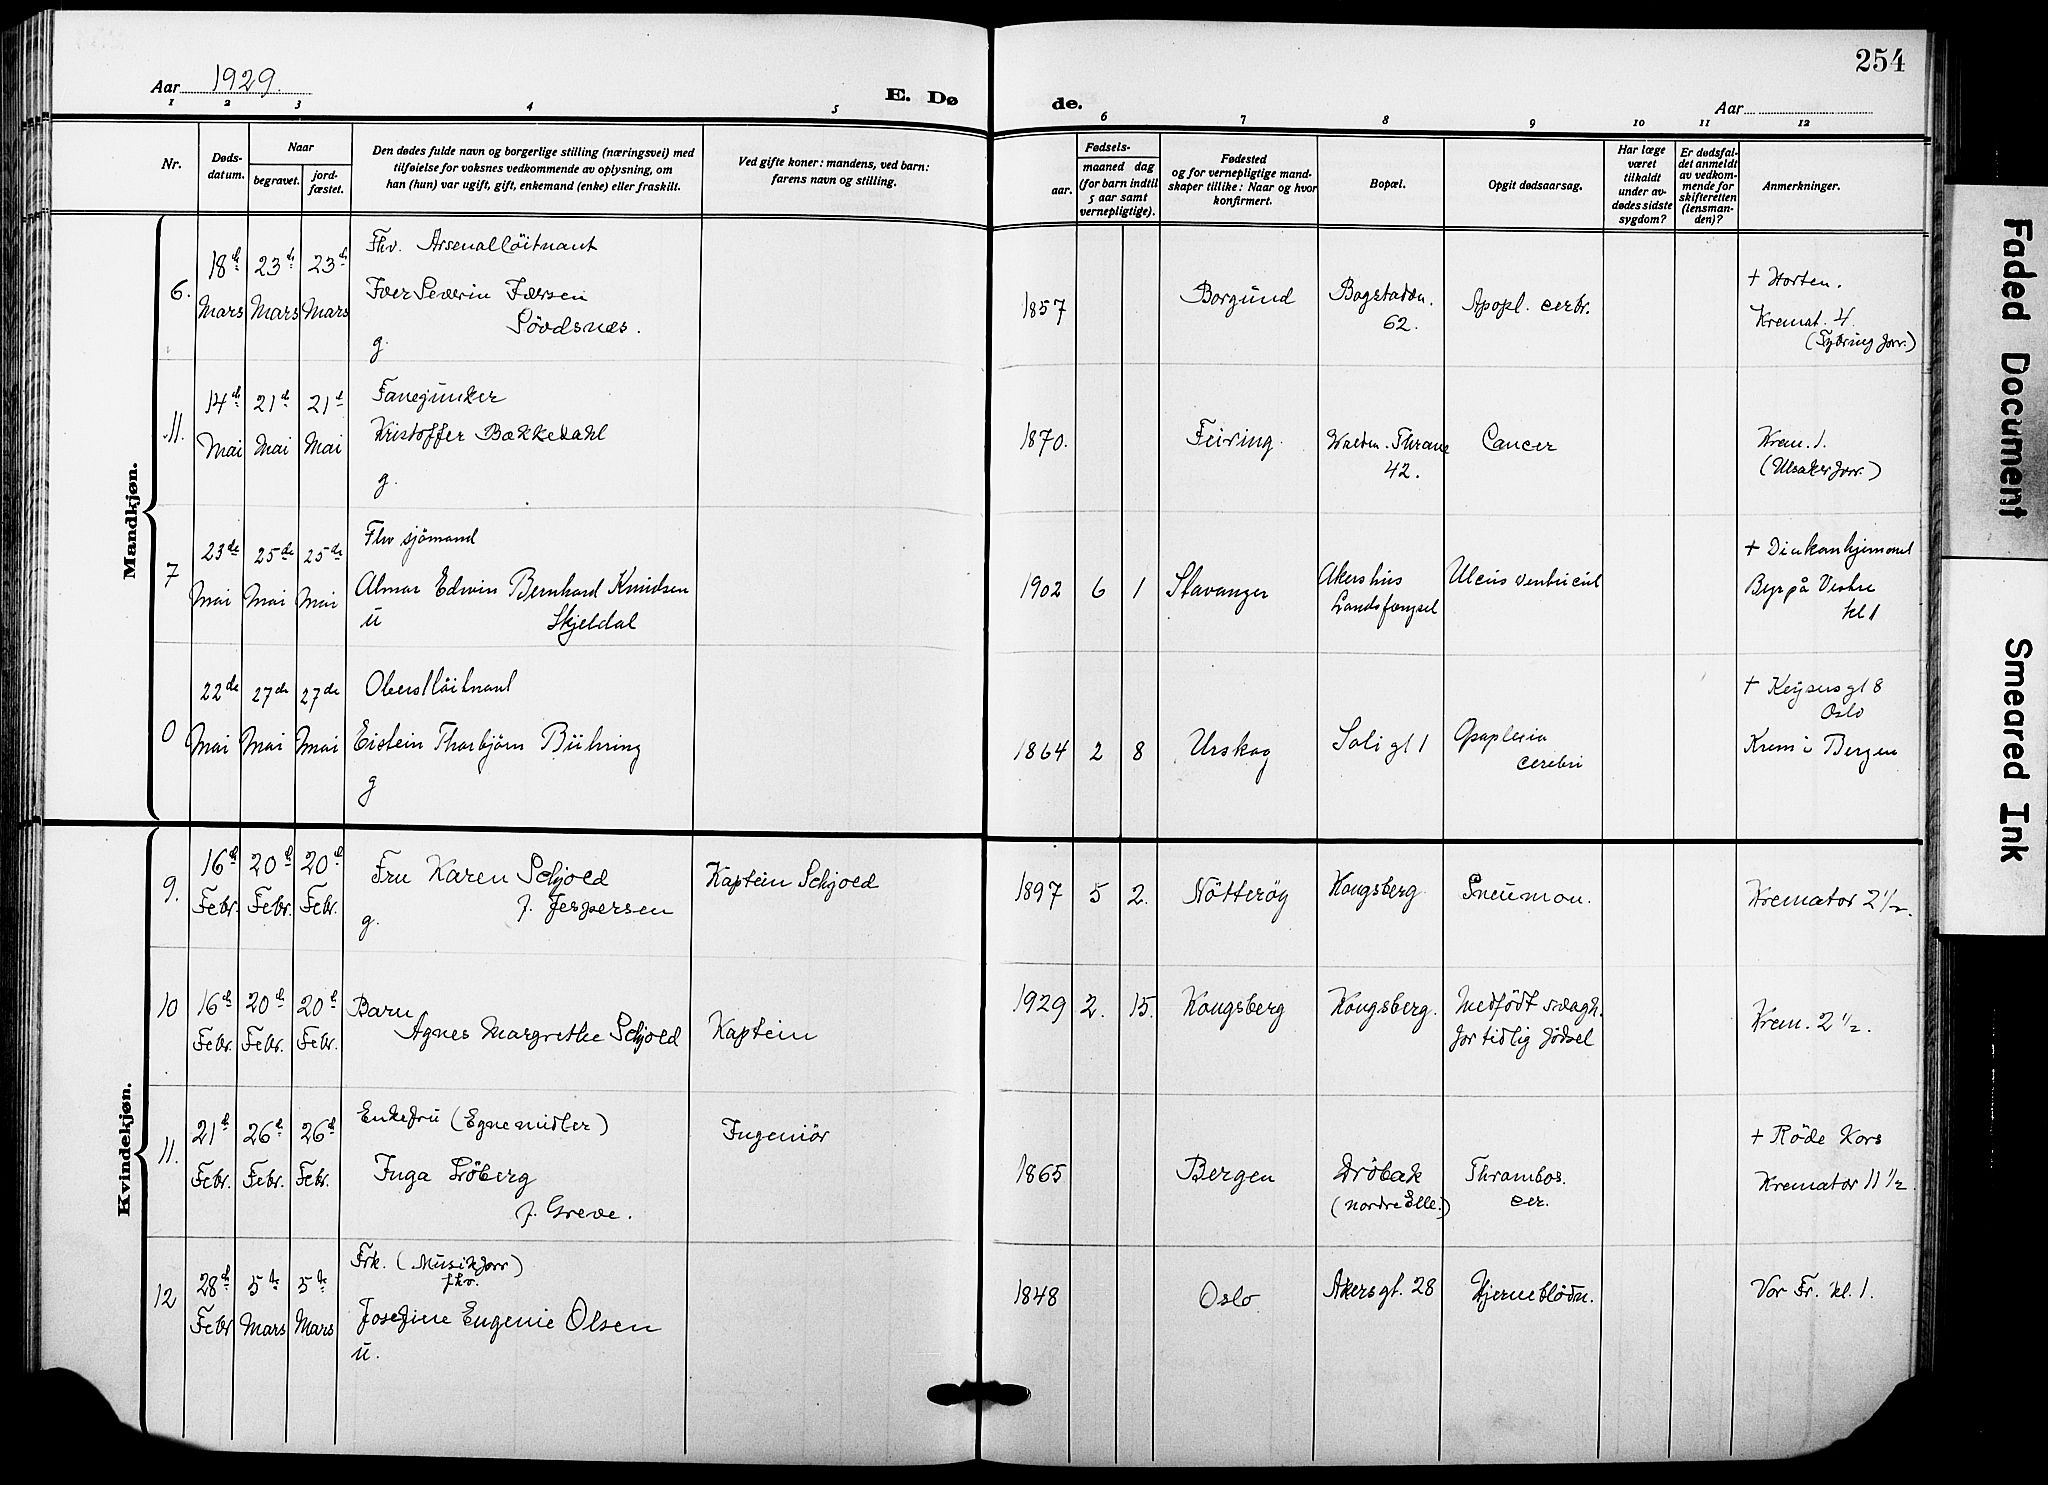 254
Aar 1929.
E. Dø
de.
Aar
1 2 3 4 5
6 7 8 9 10 11 12
Nr.
Døds-
datum.
Naar
begravet.
jord-
fæstet.
Den dødes fulde navn og borgerlige stilling (næringsvei) med
tilføielse for voksnes vedkommende av oplysning, om
han (hun) var ugift, gift, enkemand (enke) eller fraskilt.
Ved gifte koner: mandens, ved barn:
farens navn og stilling.
Fødsels-
aar.
maaned dag
(for barn indtil
5 aar samt
vernepligtige).
Fødested
og for vernepligtige mand-
skaper tillike: Naar og hvor
konfirmert.
Bopæl.
Opgit dødsaarsag.
Har læge
været
tilkaldt
under av-
dødes sidste
sygdom?
Er dødsfal-
det anmeldt
av vedkom-
mende for
skifteretten
(lensman-
den)?
Anmerkninger.
Mandkjøn.
6.
18de 23de 23de
Mars Mars Mars
Fhv. Arsenallöitnant
Iver Severin Iversen
Sövdsnes.
g.
1857
Borgund
Bogstadvn.
62.
Apopl. cerbr.
+ Horten.
Kremat. 4.
11.
14de 21de 21de
Mai Mai Mai
Fanejunker
Kristoffer Bakkedahl
g.
1870.
Feiring.
Waldm. Thrane
42.
Cancer
Krem. 1.
(Ulsaker forr.)
7
23de 25de 25de
Mai Mai Mai
Fhv sjömand
Almar Edwin Bernhard Knudsen
u Skjeldal
1902 6 1
Stavanger
Akershus
Landsfængsel
Ulcus ventricul
+ Diakonhjemmet
Byr på Vestre
kl 1
0
22de 27de 27de
Mai Mai Mai
Oberstlöitnant
Eistein Thorbjörn Bühring
g
1864 2 8
Urskog
Soligt 1
Apoplexia
cerebri
+ Keysersgt 8
Oslo
Krem i Bergen
Kvindekjøn.
9.
16de 20de 20de
Febr. Febr. Febr.
Fru Karen Schjold
f. Jespersen
g.
Kaptein Schjold
1897 5 2.
Nötteröy
Kongsberg
Pneumon.
Kremator 2 1/2.
10
16de 20de 20de
Febr. Febr. Febr.
Barn
Agnes Margrethe Schjold
Kaptein
1929 2. 15.
Kongsberg
Kongsberg.
Medfödt svagh.
for tidlig födsel
Krem. 2 1/2.
11.
21de 26de 26de
Febr. Febr. Febr.
Enkefru (Egne midler)
Inga Söberg
f. Greve.
Ingeniör
1865
Bergen
Dröbak
(nordre Elle.)
Thrombos.
cer.
+ Röde Kors
Kremator 11 1/2
12
28de 5te 5te
Febr Mars Mars
Frk. (Musikforr)
fhv.
Josefine Eugenie Olsen
u.
1848
Oslo
Akersgt. 28
Hjerneblödn.
Vor Fr. kl. 1.
Faded Document
Smeared Ink